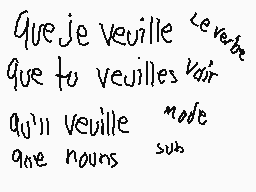 que je veuille
que tu veuilles
qu'il veuille
que nouns
Le verbe
Voir
mode
sub